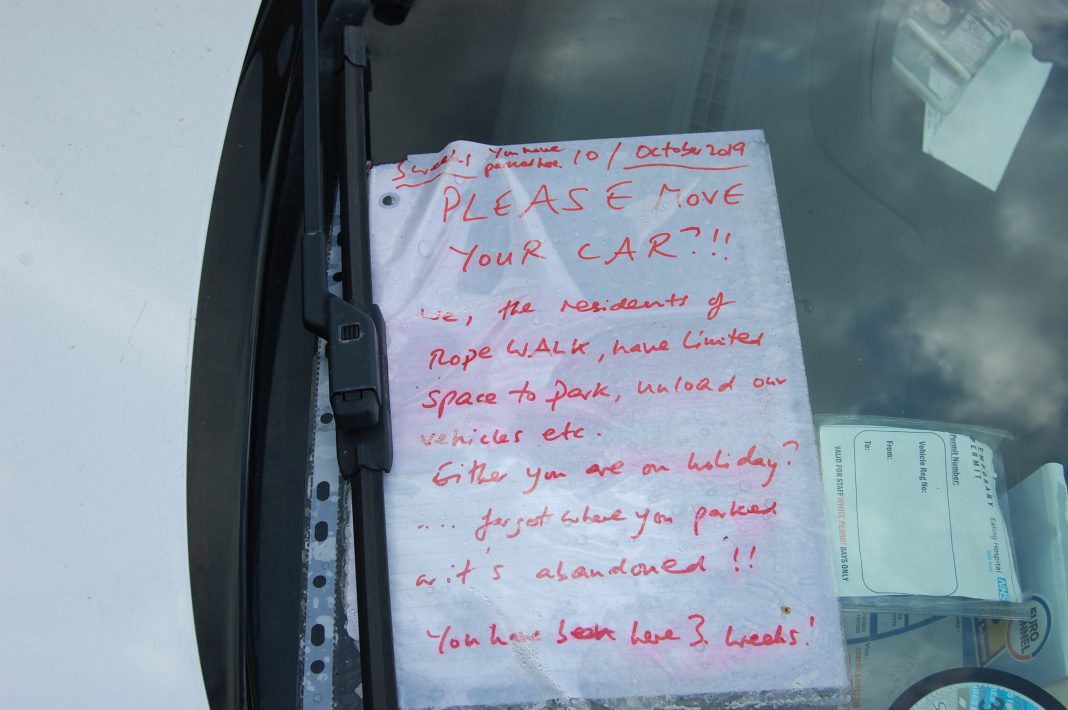 3 weeks! You have parked here 10 / October 2019
PLEASE MOVE
YOUR CAR?!!
We, the residents of
Rope WALK, have limited
space to park, unload our
vehicles etc.
Either you are on holiday?
.... forgot where you parked
or it's abandoned !!
You have been here 3 weeks!
TEMPORARY
PERMIT
Ealing Hospital
NHS
Permit Number:
Vehicle Reg No:
From:
To:
VALID FOR STAFF WHITE PERMIT BAYS ONLY
EURO
TUNNEL